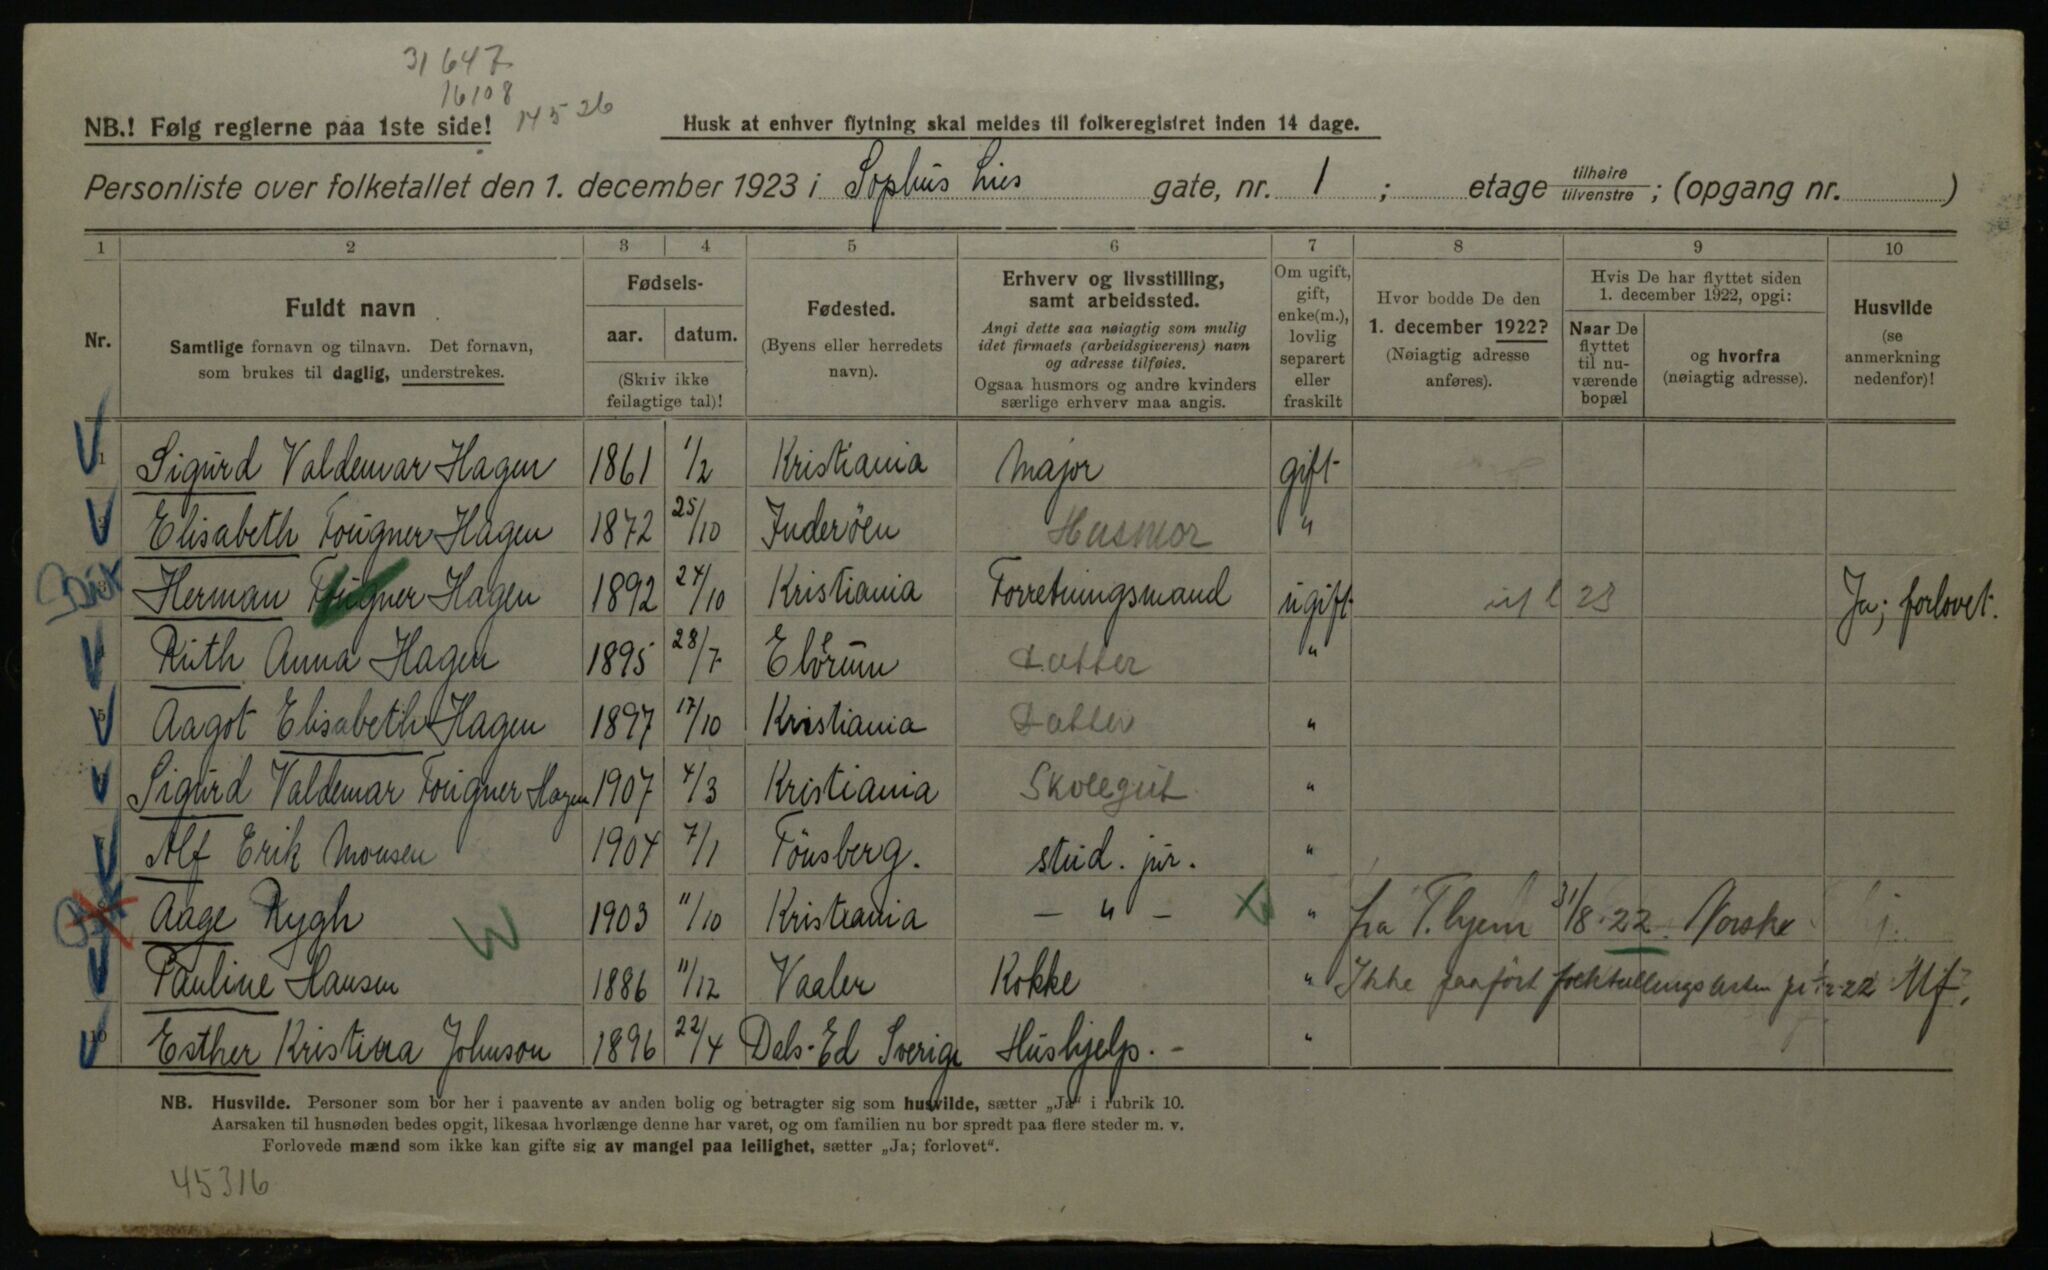 31647
16108
14526
NB.! Følg reglerne paa 1ste side!
Husk at enhver flytning skal meldes til folkeregistret inden 14 dage.
Personliste over folketallet den 1. december 1923 i Sophus Lies gate, nr. 1 ; etage tilhøire tilvenstre ; (opgang nr. )
1 2 3 4 5 6 7 8 9 10
Nr.
Fuldt navn
Samtlige fornavn og tilnavn. Det fornavn,
som brukes til daglig, understrekes.
Fødsels-
aar. datum.
(Skriv ikke
feilagtige tal)!
Fødested.
(Byens eller herredets
navn).
Erhverv og livsstilling,
samt arbeidssted.
Angi dette saa nøiagtig som mulig
idet firmaets (arbeidsgiverens) navn
og adresse tilføies.
Ogsaa husmors og andre kvinders
særlige erhverv maa angis.
Om ugift,
gift,
enke(m.),
lovlig
separert
eller
fraskilt
Hvor bodde De den
1. december 1922?
(Nøiagtig adresse
anføres).
Hvis De har flyttet siden
1. december 1922, opgi:
Naar De
flyttet
til nu-
værende
bopæl
og hvorfra
(nøiagtig adresse).
Husvilde
(se
anmerkning
nedenfor)!
1 Sigurd Valdemar Hagen 1861 1/2 Kristiania Major gift
2 Elisabeth Fougner Hagen 1872 25/10 Inderöen Husmor "
3 Herman Fougner Hagen 1892 24/10 Kristiania Forretningsmand ugift 23 Ja; forlovet.
Ruth Anna Hagen 1895 28/7 Elverum Datter "
5 Aagot Elisabeth Hagen 1897 17/10 Kristiania Datter "
Sigurd Valdemar Fougner Hagen 1907 4/3 Kristiania Skolegut "
7 Alf Erik Monsen 1904 7/1 Tönsberg. stud. jur. "
Aage Rygh 1903 11/10 Kristiania – " – " fra T.hjem 31/8-22 Norske
Pauline Hansen 1886 11/12 Vaaler Kokke " Ikke paaført folketællingslisten pr 1/12-22
10 Esther Kristina Johnson 1896 22/4 Dals-Ed Sverige Hushjelp. - "
NB. Husvilde. Personer som bor her i paavente av anden bolig og betragter sig som husvilde, sætter „Ja“ i rubrik 10.
Aarsaken til husnøden bedes opgit, likesaa hvorlænge denne har varet, og om familien nu bor spredt paa flere steder m. v.
Forlovede mænd som ikke kan gifte sig av mangel paa leilighet, sætter „Ja; forlovet“.
45316